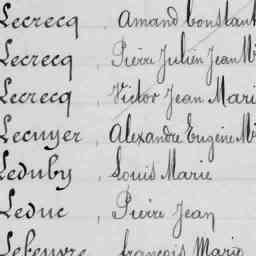 Lecrecq, Amand Constant
Lecrecq, Pierre Julien Jean M
Lecrecq, Victor Jean Mari
Lecuyer, Alexandre Eugène M
Leduby, Louis Marie
Leduc, Pierre Jean
Lefeuvre, françois Marie